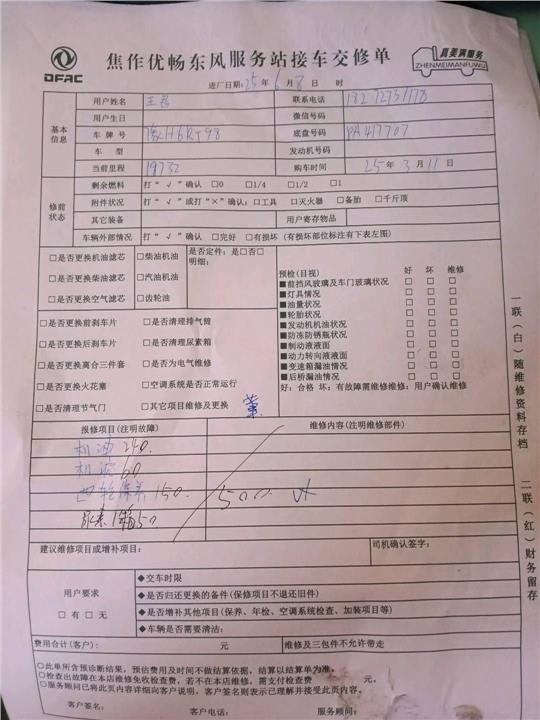 DFAC
焦作优畅东风服务站接车交修单
真美满服务
ZHENMEIMANFUWU
进厂日期:25年6月8日 时
基本信息
用户姓名 王 联系电话
用户生日 微信号码
车牌号 豫H6RJ98 底盘号码 PA417707
车型 发动机号码
当前里程 19732 购车时间 25年3月11日
修前状态
剩余燃料 打“√”确认 □0 □1/4 □1/2 □1
附件状况 打“√”或打“×”确认:□工具 □灭火器 □备胎 □千斤顶
其它装备 用户寄存物品
车辆外部情况 打“√”确认 □完好 □有损坏(有损坏部位标注有下表左图)
□是否更换机油滤芯 □柴油机油 是否定件:是□否□
明细:
□是否更换柴油滤芯 □汽油机油
□是否更换空气滤芯 □齿轮油
□是否更换前刹车片 □是否清理排气筒
□是否更换后刹车片 □是否清理尿素箱
□是否更换离合三件套 □是否为电气维修
□是否更换火花塞 □空调系统是否正常运行
□是否清理节气门 □其它项目维修及更换
预检(目视) 好 坏 维修
■前挡风玻璃及车门玻璃状况 □ □ □
■灯具情况 □ □ □
■油量状况 □ □ □
■轮胎状况 □ □ □
■发动机机油状况 □ □ □
■防冻防锈瓶状况 □ □ □
■制动液液面 □ □ □
■动力转向液液面 □ □ □
■变速箱漏油情况 □ □ □
■后桥漏油情况 □ □ □
好:合格 坏:有故障需维修维修:用户确认维修
报修项目(注明故障) 维修内容(注明维修部件)
机油 240.
机滤 60
四轮保养 150. 500
尿素 1箱50.
建议维修项目或增补项目: 司机确认签字:
用户要求
□有 □无
◆交车时限
◆是否归还更换的备件(保修项目不退还旧件)
◆是否增补其他项目(保养、年检、空调系统检查、加装项目等)
◆车辆是否需要清洁:
费用合计(客户): 元 维修及三包件不允许带走
○此单所含预诊断结果,预估费用及时间不做结算依据,结算以结算单为准。
○检查出故障在本店维修免收检查费,若不在本店维修,需支付检查费 元。
○服务顾问已将此页内容详细向客户说明,客户签名则表示已理解并接受此页内容。
客户签名: 客户电话: 服务顾问:
一联(白)随维修资料存档
二联(红)财务留存